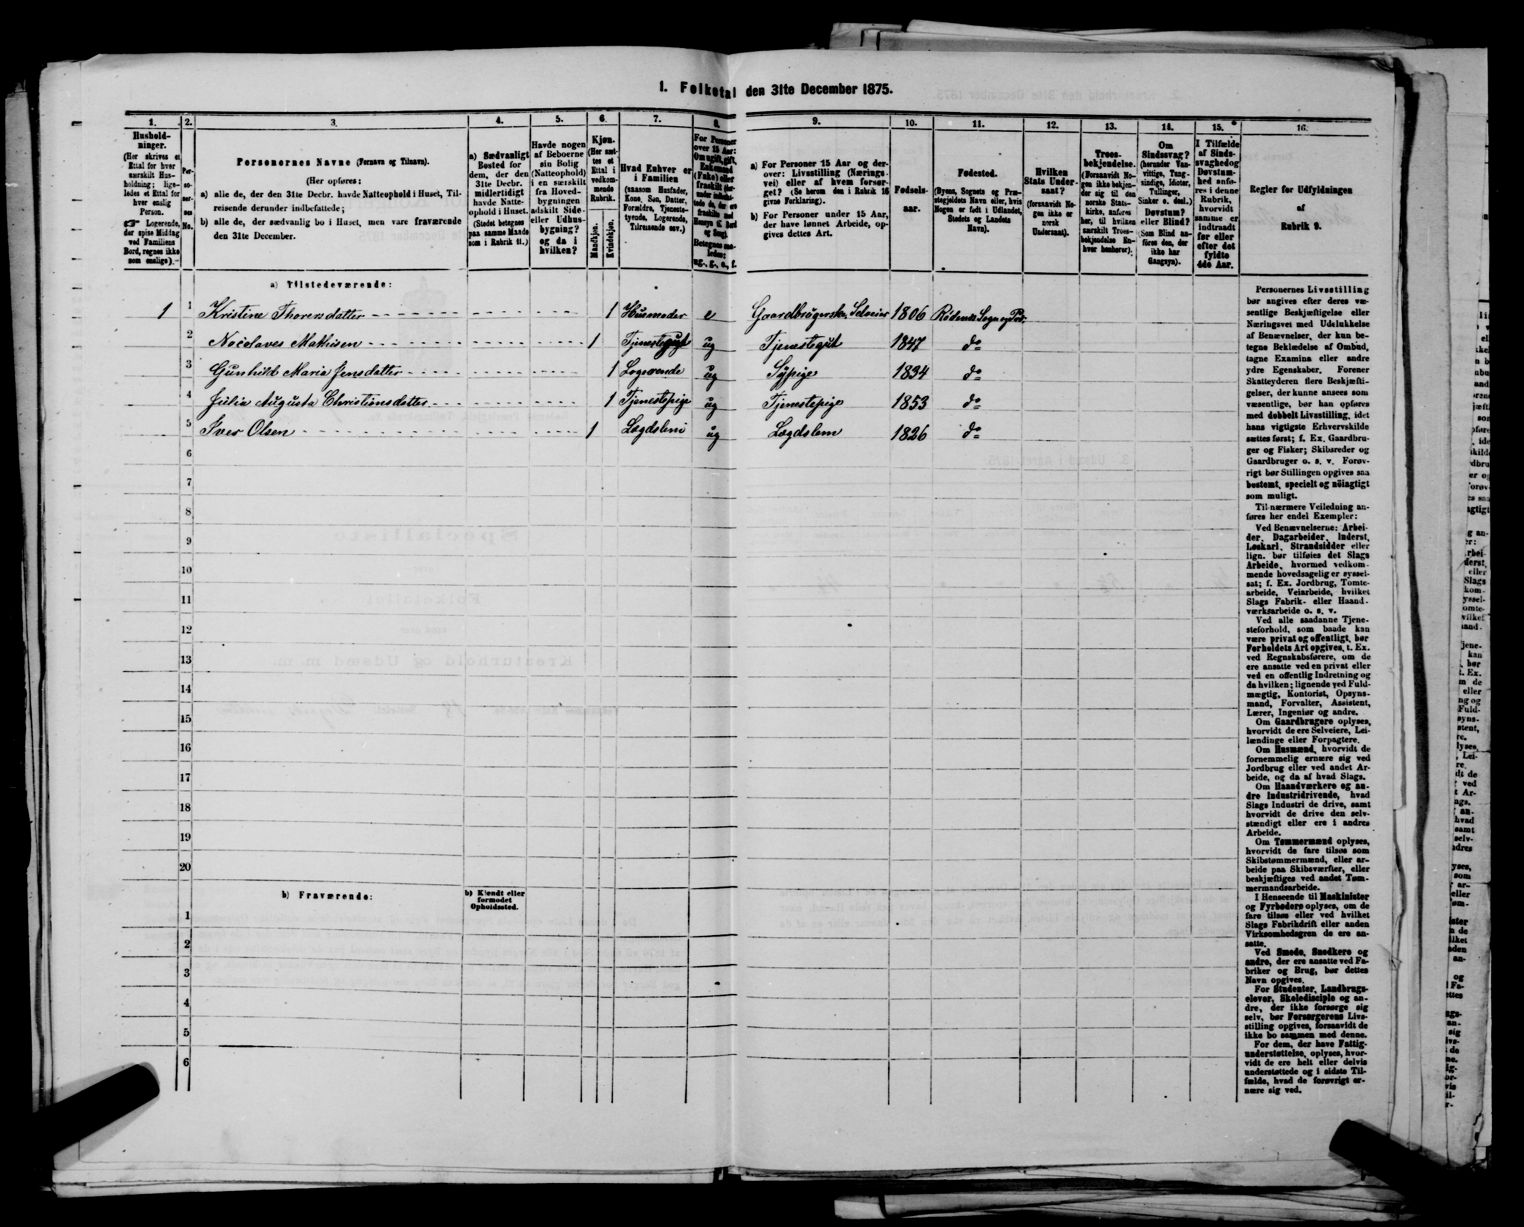 1. Folketal den 31te December 1875.
1. 2. 3. 4. 5. 6. 7. 8. 9. 10. 11. 12. 13. 14. 15. 16.
Hushold-
ninger.
(Her skrives et
Ettal for hver
særskilt Hus-
holdning; lige-
ledes et Ettal for
hver enslig
Person.
Logerende,
der spise Middag
ved Familiens
Bord, regnes ikke
som enslige).
Per-
so-
ner-
nes
No.
Personernes Navne (Fornavn og Tilnavn).
(Her opføres:
a) alle de, der den 31te Decbr. havde Natteophold i Huset, Til-
reisende derunder indbefattede;
b) alle de, der sædvanlig bo i Huset, men vare fraværende
den 31te December.
a) Sædvanligt
Bosted for
dem, der den
31te Decbr.
midlertidigt
havde Natte-
ophold i Huset.
(Stedet betegnes
paa samme Maade
som i Rubrik 11.)
Havde nogen
af Beboerne
sin Bolig
(Natteophold)
i en særskilt
fra Hoved-
bygningen
adskilt Side-
eller Udhus-
bygning?
og da i
hvilken?
Kjøn.
(Her sæt-
tes et
Ettal i
vedkom-
mende
Rubrik.
Mandkjøn.
Kvindekjøn.
Hvad Enhver er
i Familien
(saasom Husfader,
Kone, Søn, Datter,
Forældre, Tjeneste-
tyende, Logerende,
Tilreisende osv.)
For Personer
over 15 Aar:
Om ugift, gift,
Enkemand
(Enke) eller
fraskilt
Betegnes saa-
ledes:
ug., g., e., f.
a) For Personer 15 Aar og der-
over: Livsstilling (Nærings-
vei) eller af hvem forsør-
get? (Se herom den i Rubrik 16
givne Forklaring).
b) For Personer under 15 Aar,
der have lønnet Arbeide, op-
gives dettes Art.
Fødsels-
aar.
Fødested.
(Byens, Sognets og Præ-
stegjeldets Navn eller, hvis
Nogen er født i Udlandet,
Stedets og Landets
Navn).
Hvilken
Stats Under-
saat?
(forsaavidt No-
gen ikke er
norsk
Undersaat).
Troes-
bekjendelse.
(Forsaavidt No-
gen ikke bekjen-
der sig til den
norske Stats-
kirke, anføres
her, til hvilken
særskilt Troes-
bekjendelse En-
hver henhører).
Om
Sindssvag?
(herunder Van-
vittige, Tung-
sindige, Idioter,
Tullinger,
Sinker o. desl.)
Døvstum?
eller Blind?
(Som Blind an-
føres den, der
ikke har
Gangsyn).
I Tilfælde
af Sinds-
svaghed og
Døvstum-
hed anfø-
res i denne
Rubrik,
hvorvidt
samme er
indtraadt
før eller
efter det
fyldte
4de Aar.
Regler for Udfyldningen
af
Rubrik 9.
a) Tilstedeværende:
1 1 Kristine Thorensdatter 1 Husmoder e Gaardbrugerske, Selveier 1806 Rødenæs Sogn og Pd.
2 Nocolaves Mathisen 1 Tjenestegut ug Tjenestegut 1847 do
3 Gunhild Maria Jensdatter 1 Logerende ug Sypige 1834 do
4 Julia Augusta Christiansdatter 1 Tjenestepige ug Tjenestepige 1853 do
5 Iver Olsen 1 Lægdslem ug Lægdslem 1826 do
6
7
8
9
10
11
12
13
14
15
16
17
18
19
20
b) Fraværende:
b) Kjendt eller
formodet
Opholdssted.
1
2
3
4
5
6
Personernes Livsstilling
bør angives efter deres væ-
sentlige Beskjæftigelse eller
Næringsvei med Udelukkelse
af Benævnelser, der kun be-
tegne Beklædelse af Ombud,
tagne Examina eller andre
ydre Egenskaber. Forener
Skatteyderen flere Beskjæfti-
gelser, der kunne ansees som
væsentlige, bør han opføres
med dobbelt Livsstilling, idet
hans vigtigste Erhvervskilde
sættes først; f. Ex. Gaardbru-
ger og Fisker; Skibsreder og
Gaardbruger o. s. v. Forøv-
rigt bør Stillingen opgives saa
bestemt, specielt og nøiagtigt
som muligt.
Til nærmere Veiledning an-
føres her endel Exempler:
Ved Benævnelserne: Arbei-
der, Dagarbeider, Inderst,
Løskarl, Strandsidder eller
lign. bør tilføies det Slags
Arbeide, hvormed vedkom-
mende hovedsagelig er syssel-
sat; f. Ex. Jordbrug, Tomte-
arbeide, Veiarbeide, hvilket
Slags Fabrik- eller Haand-
værksarbeide o. s. v.
Ved alle saadanne Tjene-
steforhold, som baade kan
være privat og offentligt, bør
Forholdets Art opgives, t. Ex.
ved Regnskabsførere, om de
ere ansatte ved en privat eller
ved en offentlig Indretning og
da hvilken; lignende ved Fuld-
mægtig, Kontorist, Opsyns-
mand, Forvalter, Assistent,
Lærer, Ingeniør og andre.
Om Gaardbrugere oplyses,
hvorvidt de ere Selveiere, Lei-
lændinge eller Forpagtere.
Om Husmænd, hvorvidt de
fornemmelig ernære sig ved
Jordbrug eller ved andet Ar-
beide, og da af hvad Slags.
Om Haandværkere og an-
dre Industridrivende, hvad
Slags Industri de drive, samt
hvorvidt de drive den selv-
stændigt eller ere i andres
Arbeide.
Om Tømmermænd oplyses,
hvorvidt de fare tilsøs som
Skibstømmermænd, eller ar-
beide paa Skibsværfter, eller
beskjæftiges ved andet Tøm-
mermandsarbeide.
I Henseende til Maskinister
og Fyrbødere oplyses, om de
fare tilsøs eller ved hvilket
Slags Fabrikdrift eller anden
Virksomhedsgren de ere an-
satte.
Ved Smede, Snedkere og
andre, der ere ansatte ved Fa-
briker og Brug, bør dettes
Navn opgives.
For Studenter, Landbrugs-
elever, Skoledisciple og an-
dre, der ikke forsørge sig
selv, bør Forsørgerens Livs-
stilling opgives, forsaavidt de
ikke bo sammen med denne.
For dem, der have Fattig-
understøttelse, oplyses, hvor-
vidt de ere helt eller delvis
understøttede og i sidste Til-
fælde, hvad de forøvrigt er-
nære sig ved.